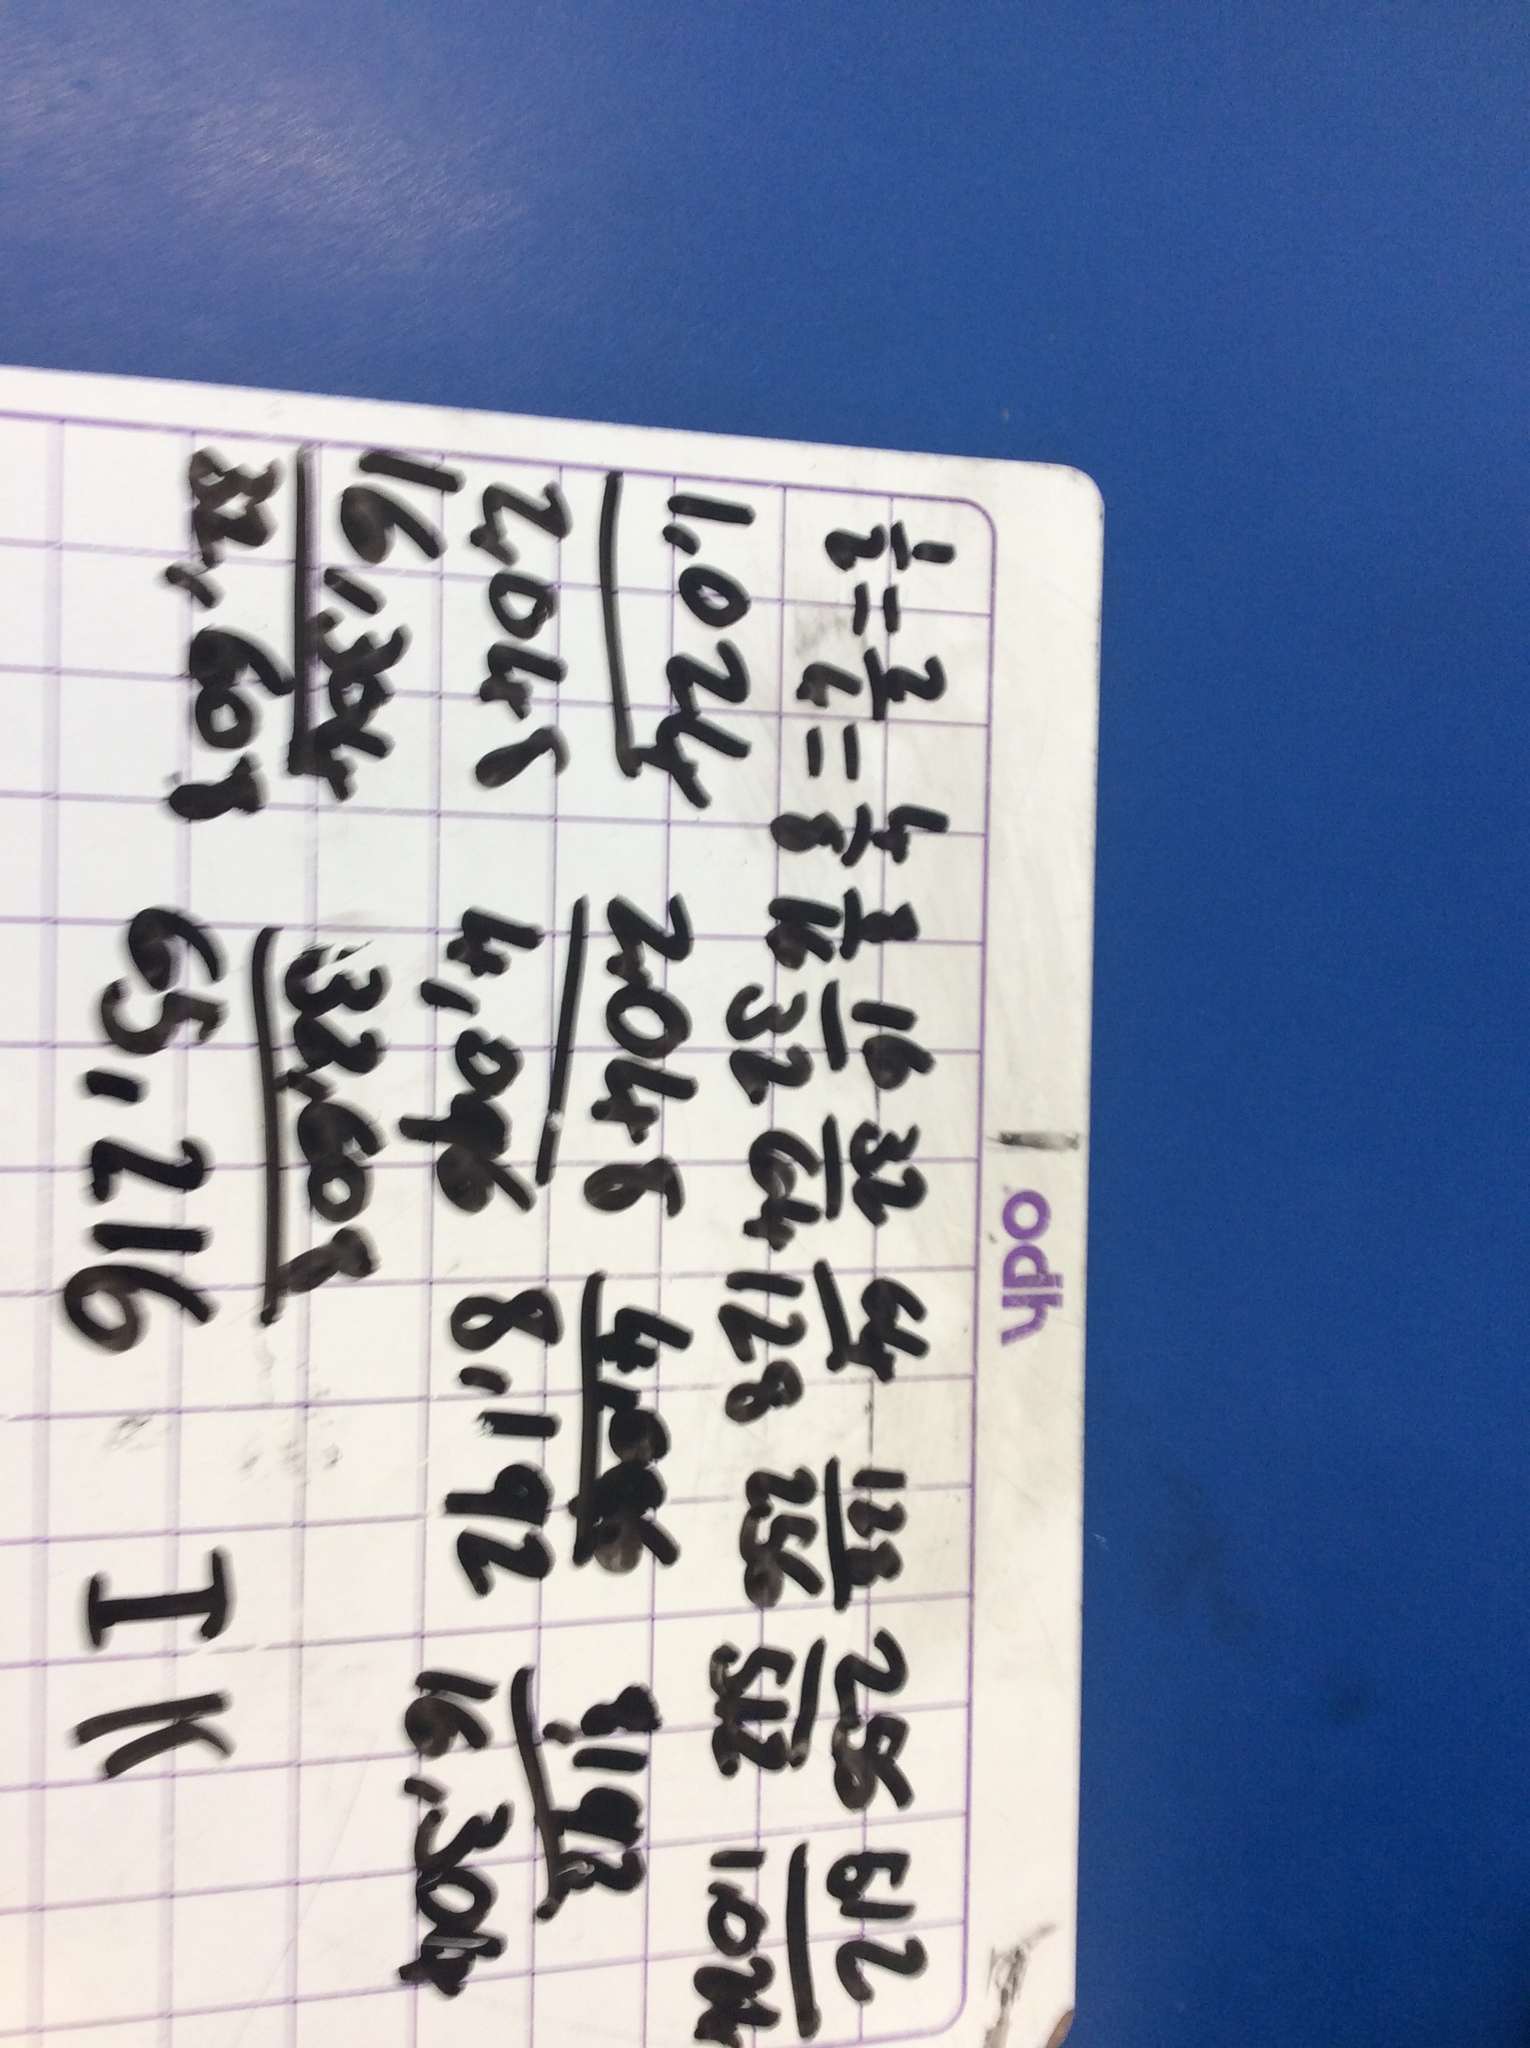 ydpo
1/2 = 2/4 = 4/8 8/16 16/32 32/64 64/128 128/256 256/512 512/1,024
1,024/2,048 2,048/4,096 4,096/8,192 8,192/16,304
16,304/32,608 32,608/65,216 IK